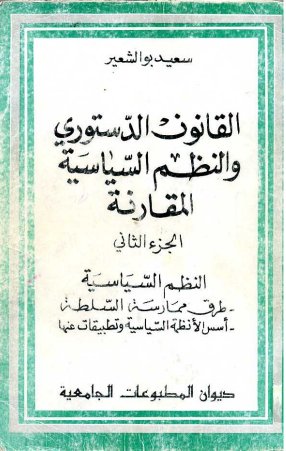 سعيد بوالشعير
القانون الدستوري
والنظم السياسية
المقارنة
الجزء الثاني
النظم السياسية
- طرق ممارسة السلطة
- أسس الأنظمة السياسية وتطبيقات عنها
ديوان المطبوعات الجامعية